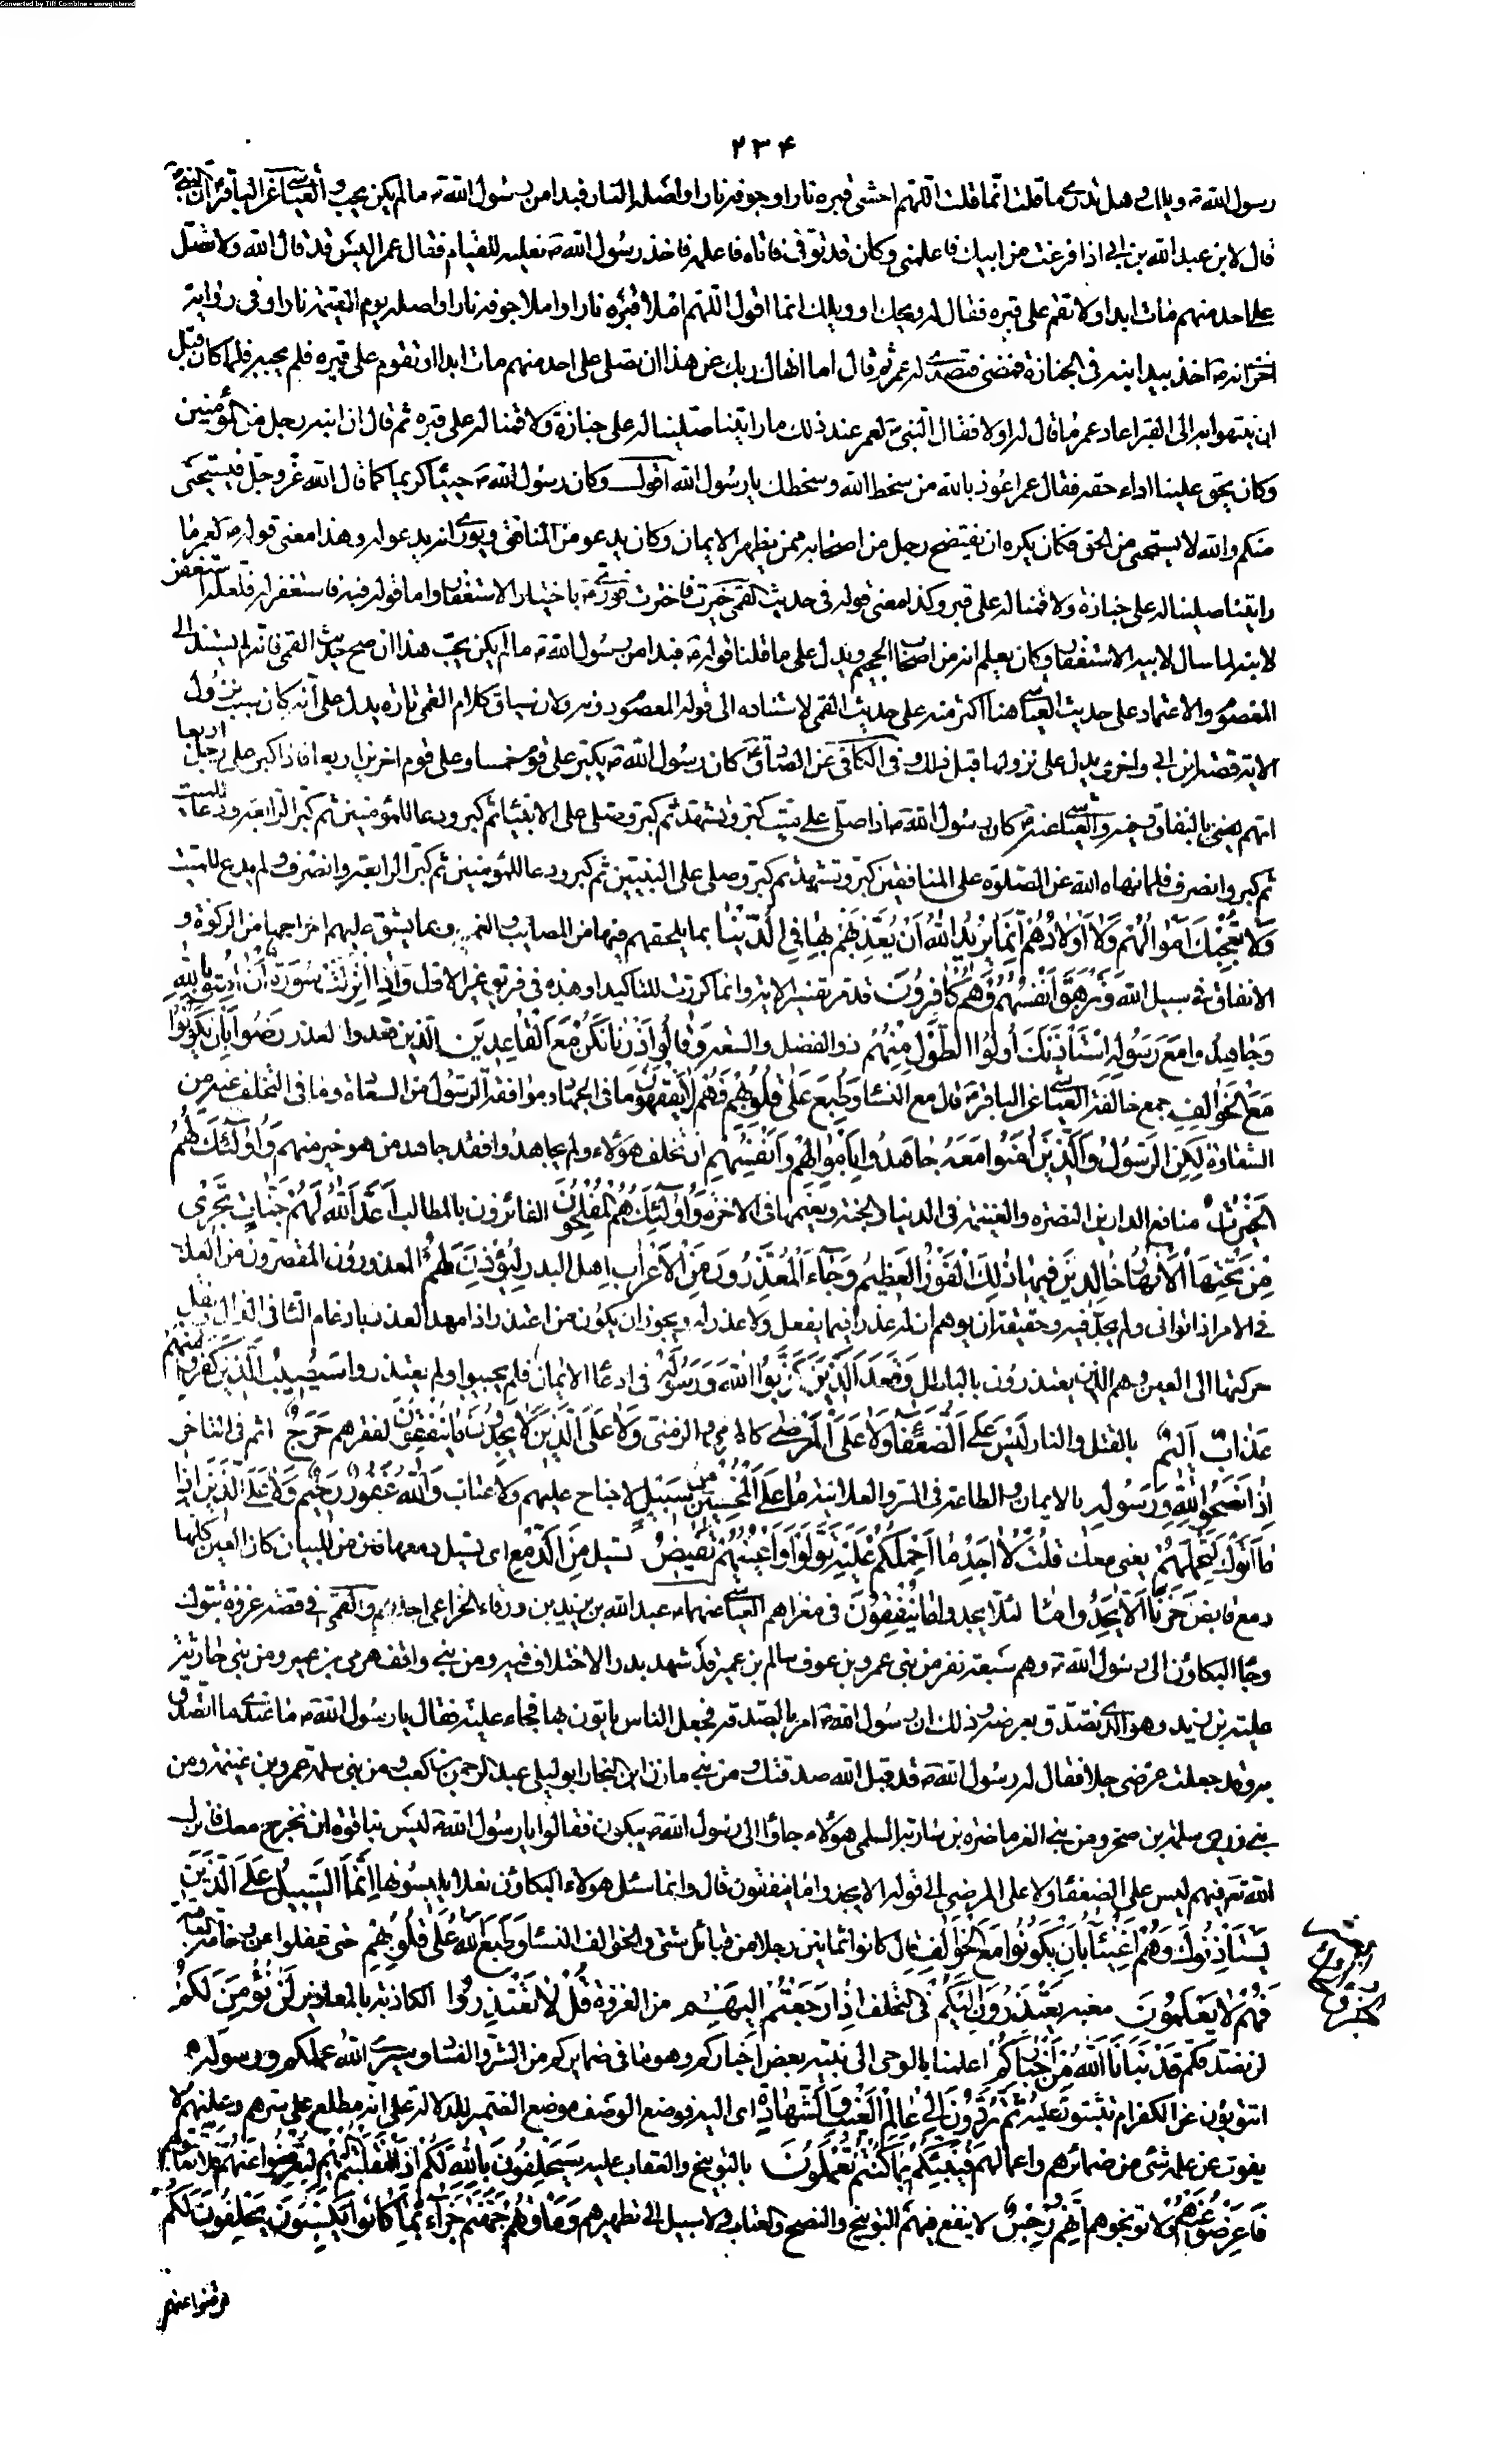 Converted by Tiff Combine - unregistered
۲۳۴
رسول الله ص ويلك وهل تدري ما قلت انما قلت اللهم احش قبره نارا وجوفه نارا واصله النار فبدا من رسول الله ص ما لم يكن يحب والعياشي عن الباقر ان النبي ص
قال لابن عبد الله بن ابي اذا فرغت من ابيك فاعلمني وكان قد توفى فاتاه فاعلمه فاخذ رسول الله ص نعليه للقيام فقال عمر اليس قد قال الله ولا تصل
على احد منهم مات ابدا ولا تقم على قبره فقال له ويحك او ويلك انما اقول اللهم املا قبره نارا واملا جوفه نارا واصله يوم القيمة نارا وفي رواية
اخرى انه ص اخذ بيد ابنه في الجنازة فمضى فتصدى له عمر ثم قال اما نهاك ربك عن هذا ان تصلي على احد منهم مات ابدا او تقوم على قبره فلم يجبه فلما كان قبل
ان ينتهوا به الى القبر اعاد عمر ما قال له اولا فقال النبي ص لعمر عند ذلك ما رايتنا صلينا له على جنازة ولا قمنا له على قبره ثم قال ان ابنه رجل من المؤمنين
وكان يحق علينا اداء حقه فقال عمر اعوذ بالله من سخط الله وسخطك يا رسول الله اقول وكان رسول الله ص حييا كريما كما قال الله عز وجل فيستحيى
منكم والله لا يستحيى من الحق فكان يكره ان يفتضح رجل من اصحابه ممن يظهر الايمان وكان يدعو من المنافق ويورى انه يدعو له وهذا معنى قوله ص لعمر ما
رايتنا صلينا له على جنازة ولا قمنا له على قبر وكذا معنى قوله في حديث القمي خيرت فاخترت فورى ص باختيار الاستغفار واما قوله فيه فاستغفر له فلعله استغفر
لابنه لما سال لابيه الاستغفار وكان يعلم انه من اصحاب الجحيم ويدل على ما قلنا قوله ص فبدا من رسول الله ص ما لم يكن يحب هذا ان صح حديث القمي فانه لم يستند الى
المعصوم والاعتماد على حديث العياشي هنا اكثر منه على حديث القمي لاستناده الى قول المعصوم دونه ولان سياق كلام القمي تارة يدل على انه كان سبب نزول
الاية قصة ابن ابي واخرى يدل على نزولها قبل ذلك وفي الكافي عن الصادق ع كان رسول الله ص يكبر على قوم خمسا وعلى قوم اخرين اربعا فاذا كبر على رجل اربعا
اتهم يعني بالنفاق وفيه والعياشي عنه ع كان رسول الله ص اذا صلى على ميت كبر وتشهد ثم كبر وصلى على الانبياء ثم كبر ودعا للمؤمنين ثم كبر الرابعة ودعا للميت
ثم كبر وانصرف فلما نهاه الله عن الصلوة على المنافقين كبر وتشهد ثم كبر وصلى على النبيين ثم كبر ودعا للمؤمنين ثم كبر الرابعة وانصرف ولم يدع للميت
وَلَا تُعْجِبْكَ اَمْوالُهُمْ وَلَا اَوْلَادُهُمْ اِنَّمَا يُرِيدُ اللهُ اَنْ يُعَذِّبَهُمْ بِهَا فِي الدُّنْيَا بما يلحقهم فيها من المصايب والغم وبما يشق عليهم اخراجها من الزكوة و
الانفاق في سبيل الله وَتَزْهَقَ اَنْفُسُهُمْ وَهُمْ كَافِرُونَ قد مر تفسير الاية وانما كررت للتاكيد او هذه في فريق غير الاول وَاِذَا اُنْزِلَتْ سُورَةٌ اَنْ اٰمِنُوا بِاللهِ
وَجَاهِدُوا مَعَ رَسُولِهِ اسْتَأْذَنَكَ اُولُوا الطَّوْلِ مِنْهُمْ ذوالفضل والسعة وَقَالُوا ذَرْنَا نَكُنْ مَعَ الْقَاعِدِينَ الذين قعدوا لعذر رَضُوا بِاَنْ يَكُونُوا
مَعَ الْخَوَالِفِ جمع خالفة العياشي عن الباقر ع قال مع النساء وَطُبِعَ عَلَى قُلُوبِهِمْ فَهُمْ لَا يَفْقَهُونَ ما في الجهاد وموافقة الرسول من السعادة وما في التخلف عنه من
الشقاوة لٰكِنِ الرَّسُولُ وَالَّذِينَ اٰمَنُوا مَعَهُ جَاهَدُوا بِاَمْوَالِهِمْ وَاَنْفُسِهِمْ ان تخلف هؤلاء ولم يجاهدوا فقد جاهد من هو خير منهم وَاُولٰئِكَ لَهُمُ
الْخَيْرَاتُ منافع الدارين النصرة والغنيمة في الدنيا والجنة ونعيمها في الاخرة وَاُولٰئِكَ هُمُ الْمُفْلِحُونَ الفائزون بالمطالب اَعَدَّ اللهُ لَهُمْ جَنَّاتٍ تَجْرِي
مِنْ تَحْتِهَا الْاَنْهَارُ خَالِدِينَ فِيهَا ذٰلِكَ الْفَوْزُ الْعَظِيمُ وَجَاءَ الْمُعَذِّرُونَ مِنَ الْاَعْرَابِ اهل البدو لِيُؤْذَنَ لَهُمْ المعذرون المقصرون من العذر
في الامر اذا توانى ولم يجد فيه وحقيقته ان يوهم ان له عذرا فيما يفعل ولا عذر له ويجوز ان يكون من اعتذر اذا مهد العذر بادغام التاء في الذال ونقل
حركتها الى العين وهم الذين يعتذرون بالباطل وَقَعَدَ الَّذِينَ كَذَبُوا اللهَ وَرَسُولَهُ في ادعاء الايمان فلم يجيبوا ولم يعتذروا سَيُصِيبُ الَّذِينَ كَفَرُوا مِنْهُمْ
عَذَابٌ اَلِيمٌ بالقتل والنار لَيْسَ عَلَى الضُّعَفَاءِ وَلَا عَلَى الْمَرْضٰى كالهرمى والزمنى وَلَا عَلَى الَّذِينَ لَا يَجِدُونَ مَا يُنْفِقُونَ لفقرهم حَرَجٌ اثم في التاخر
اِذَا نَصَحُوا لِلّٰهِ وَرَسُولِهِ بالايمان والطاعة في السر والعلانية مَا عَلَى الْمُحْسِنِينَ مِنْ سَبِيلٍ لا جناح عليهم ولا عتاب وَاللهُ غَفُورٌ رَحِيمٌ وَلَا عَلَى الَّذِينَ اِذَا
مَا اَتَوْكَ لِتَحْمِلَهُمْ يعني معك قُلْتَ لَا اَجِدُ مَا اَحْمِلُكُمْ عَلَيْهِ تَوَلَّوْا وَاَعْيُنُهُمْ تَفِيضُ تسيل مِنَ الدَّمْعِ اى تسيل دمعها فان من للبيان كان العين كلها
دمع فايض حَزَنًا اَلَّا يَجِدُوا لئلا يجدوا مَا يُنْفِقُونَ في مغزاهم العياشي عنهما ع عبد الله بن يزيد بن ورقاء الخزاعي احدهم والقمي في قصة غزوة تبوك
وجاء البكاؤن الى رسول الله ص وهم سبعة نفر من بني عمرو بن عوف سالم بن عمير قد شهد بدرا لا اختلاف فيه ومن بني واقف هرمي بن عمير ومن بني حارثة
علية بن زيد وهو الذي تصدق بعرضه وذلك ان رسول الله ص امر بالصدقة فجعل الناس ياتون بها فجاء علية فقال يا رسول الله ص ما عندي ما اتصدق
به وقد جعلت عرضي حلا فقال له رسول الله ص قد قبل الله صدقتك ومن بني مازن ابن النجار ابو ليلى عبد الرحمن بن كعب ومن بني سلمة عمرو بن غنمة ومن
بني زريق سلمة بن صخر ومن بني الغر ماضرة بن سارية السلمي هؤلاء جاؤا الى رسول الله ص يبكون فقالوا يا رسول الله ص ليس بنا قوة ان نخرج معك فانزل
الله تع فيهم ليس على الضعفاء ولا على المرضى الى قوله الا يجدوا ما ينفقون قال وانما سئل هؤلاء البكاؤن نعلا يلبسونها اِنَّمَا السَّبِيلُ عَلَى الَّذِينَ
يَسْتَأْذِنُونَكَ وَهُمْ اَغْنِيَاءُ رَضُوا بِاَنْ يَكُونُوا مَعَ الْخَوَالِفِ قال كانوا ثمانين رجلا من قبائل شتى والخوالف النساء وَطَبَعَ اللهُ عَلَى قُلُوبِهِمْ حتى غفلوا عن وخامة العاقبة
فَهُمْ لَا يَعْلَمُونَ مغبته يَعْتَذِرُونَ اِلَيْكُمْ في التخلف اِذَا رَجَعْتُمْ اِلَيْهِمْ من الغزوة قُلْ لَا تَعْتَذِرُوا الكاذبة بالمعاذير لَنْ نُؤْمِنَ لَكُمْ
لن نصدقكم قَدْ نَبَّأَنَا اللهُ مِنْ اَخْبَارِكُمْ اعلمنا بالوحى الى نبيه بعض اخباركم وهو ما في ضمايركم من الشر والفساد وَسَيَرَى اللهُ عَمَلَكُمْ وَرَسُولُهُ
اتتوبون عن الكفر ام تثبتون عليه ثُمَّ تُرَدُّونَ اِلَى عَالِمِ الْغَيْبِ وَالشَّهَادَةِ اى اليه فوضع الوصف موضع الضمير للدلالة على انه مطلع على سرهم وعلنهم لا
يفوت عن علمه شئ من ضمائرهم واعمالهم فَيُنَبِّئُكُمْ بِمَا كُنْتُمْ تَعْمَلُونَ بالتوبيخ والعقاب عليه سَيَحْلِفُونَ بِاللهِ لَكُمْ اِذَا انْقَلَبْتُمْ اِلَيْهِمْ لِتُعْرِضُوا عَنْهُمْ فلا تعاتبوهم
فَاَعْرِضُوا عَنْهُمْ ولا توبخوهم اِنَّهُمْ رِجْسٌ لا ينفع فيهم التوبيخ والنصح والعتاب ولا سبيل الى تطهيرهم وَمَأْوٰهُمْ جَهَنَّمُ جَزَاءً بِمَا كَانُوا يَكْسِبُونَ يَحْلِفُونَ لَكُمْ
لترضوا عنهم